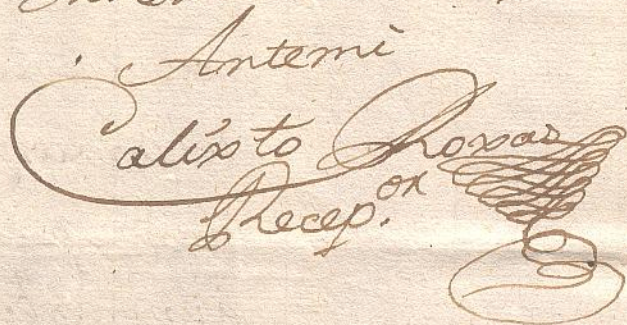 Antemi
Calixto Roxas
Recep.or